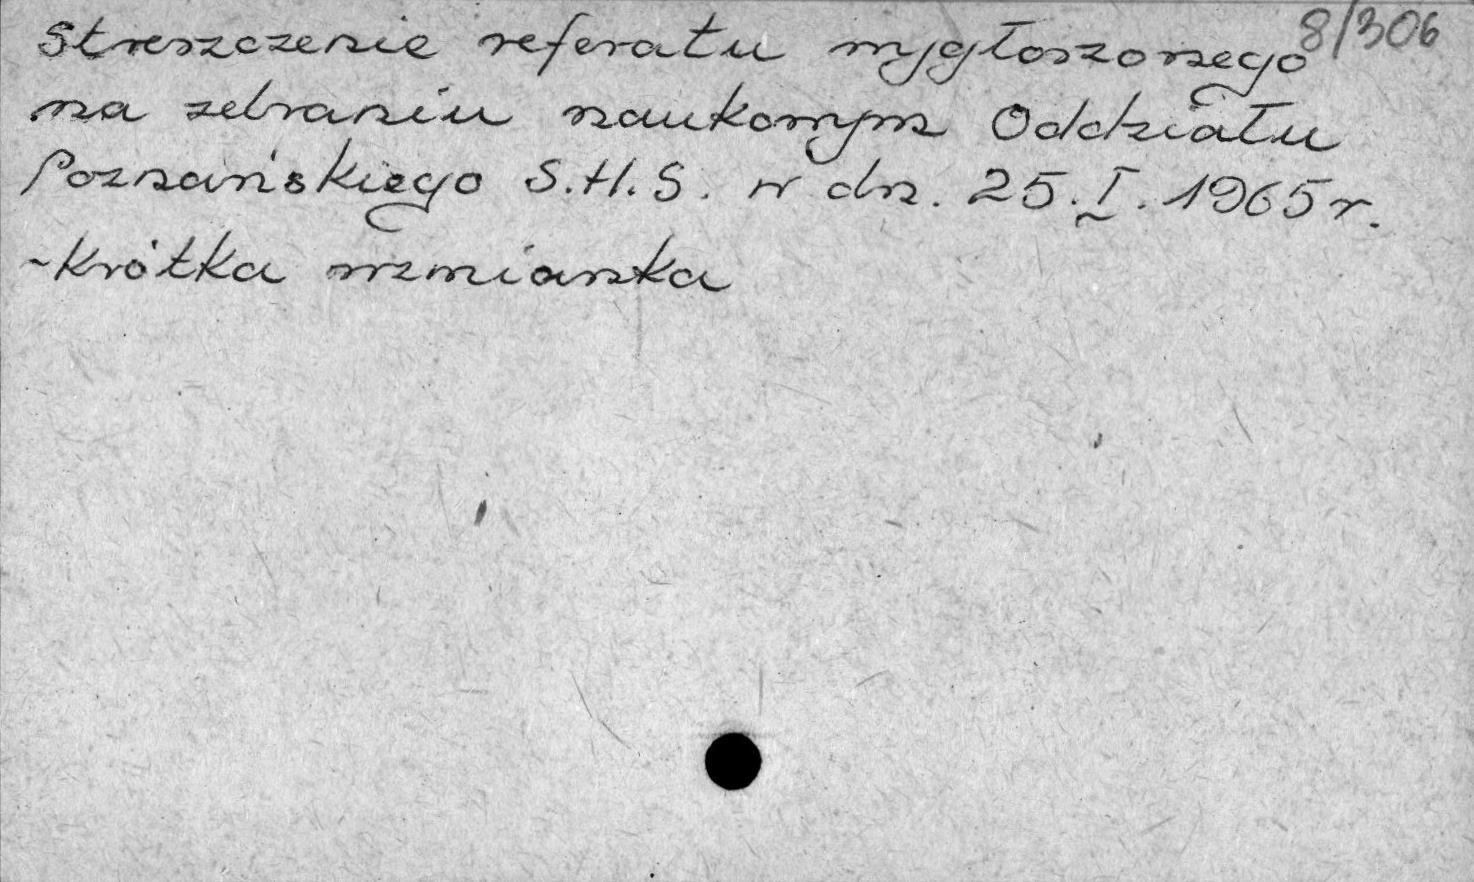 8/306
Streszczenie referatu wygłoszonego
na zebraniu naukowym Oddziału
Poznańskiego S.H.S. w dn. 25.I.1965 r.
-Krótka wzmianka